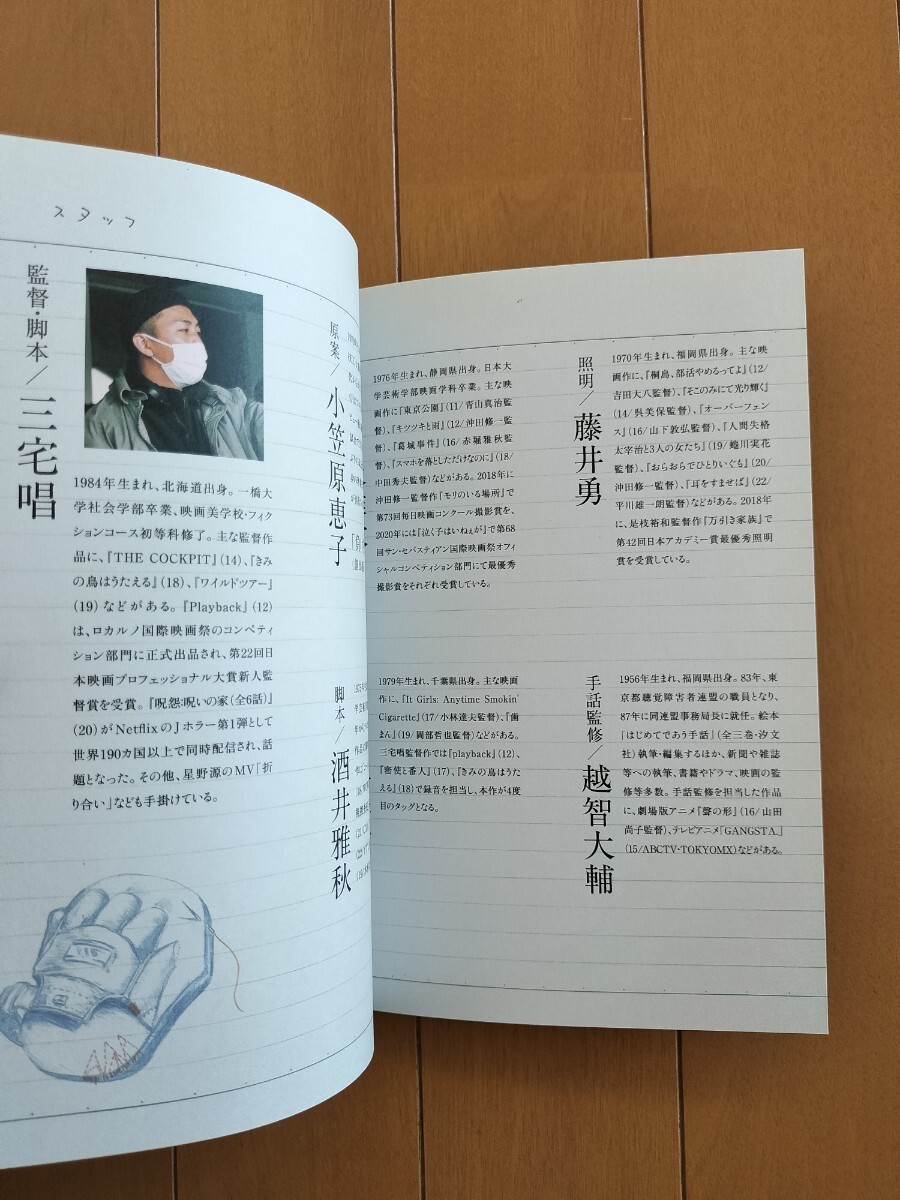 スタッフ
監督・脚本/三宅唱
1984年生まれ、北海道出身。一橋大
学社会学部卒業、映画美学校・フィク
ションコース初等科修了。主な監督作
品に、『THE COCKPIT』(14)、『きみ
の鳥はうたえる』(18)、『ワイルドツアー』
(19)などがある。『Playback』(12)
は、ロカルノ国際映画祭のコンペティ
ション部門に正式出品され、第22回日
本映画プロフェッショナル大賞新人監
督賞を受賞。『呪怨:呪いの家(全6話)』
(20)がNetflixのJホラー第1弾として
世界190カ国以上で同時配信され、話
題となった。その他、星野源のMV「折
り合い」なども手掛けている。
原案/小笠原恵子
脚本/酒井雅秋
1976年生まれ、静岡県出身。日本大
学芸術学部映画学科卒業。主な映
画作に『東京公園』(11/青山真治監
督)、『キツツキと雨』(12/沖田修一監
督)、『葛城事件』(16/赤堀雅秋監
督)、『スマホを落としただけなのに』(18/
中田秀夫監督)などがある。2018年に
沖田修一監督作『モリのいる場所』で
第73回毎日映画コンクール撮影賞を、
2020年には『泣く子はいねぇが』で第68
回サン・セバスティアン国際映画祭オフィ
シャルコンペティション部門にて最優秀
撮影賞をそれぞれ受賞している。
照明/藤井勇
1970年生まれ、福岡県出身。主な映
画作に、『桐島、部活やめるってよ』(12/
吉田大八監督)、『そこのみにて光り輝く』
(14/呉美保監督)、『オーバーフェン
ス』(16/山下敦弘監督)、『人間失格
太宰治と3人の女たち』(19/蜷川実花
監督)、『おらおらでひとりいぐも』(20/
沖田修一監督)、『耳をすませば』(22/
平川雄一朗監督)などがある。2018年
に、是枝裕和監督作『万引き家族』で
第42回日本アカデミー賞最優秀照明
賞を受賞している。
1979年生まれ、千葉県出身。主な映画
作に、『It Girls: Anytime Smokin'
Cigarette』(17/小林達夫監督)、『歯
まん』(19/岡部哲也監督)などがある。
三宅唱監督作では『playback』(12)、
『密使と番人』(17)、『きみの鳥はうた
える』(18)で録音を担当し、本作が4度
目のタッグとなる。
手話監修/越智大輔
1956年生まれ、福岡県出身。83年、東
京都聴覚障害者連盟の職員となり、
87年に同連盟事務局長に就任。絵本
『はじめてであう手話』(全三巻・汐文
社)執筆・編集するほか、新聞や雑誌
等への執筆、書籍やドラマ、映画の監
修等多数。手話監修を担当した作品
に、劇場版アニメ『聲の形』(16/山田
尚子監督)、テレビアニメ「GANGSTA.」
(15/ABCTV・TOKYOMX)などがある。